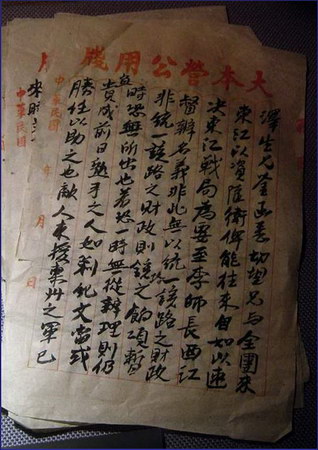 大本營公用牋
澤生兄鑒函悉切望兄与全團來
東江以資匡衛俾能往來自如以速
決東江戰局為要至李師長西江
督辦名義非此無以統一該路之財政
非統一該路之財政則饒之餉項暫
時必無所出也若恐一時無從辦理則仍
責成前日熟手之人如化文當或
勝任以助之也敵人來援惠州之軍已
中華民國 年 月 日
中華民國